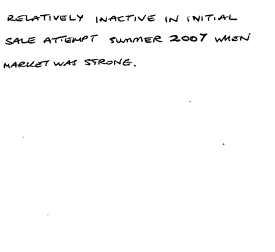 RELATIVELY INACTIVE IN INITIAL
SALE ATTEMPT SUMMER 2007 WHEN
MARKET WAS STRONG.